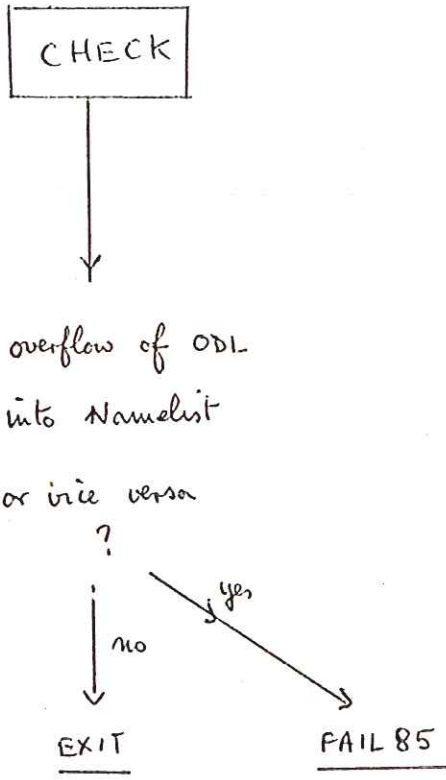 CHECK
overflow of ODL
into Namelist
or vice versa
?
yes
no
EXIT
FAIL 85